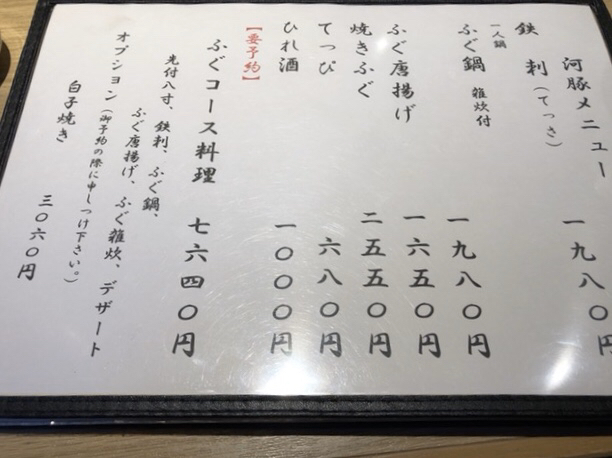 河豚メニュー
鉄刺（てっさ） 一九八〇円
一人鍋
ふぐ鍋 雑炊付 一九八〇円
ふぐ唐揚げ 一六五〇円
焼きふぐ 二五五〇円
てっぴ 六八〇円
ひれ酒 一〇〇〇円
【要予約】
ふぐコース料理 七六四〇円
先付八寸、鉄刺、ふぐ鍋、
ふぐ唐揚げ、ふぐ雑炊、デザート
オプション（御予約の際に申しつけ下さい。）
白子焼き 三〇六〇円